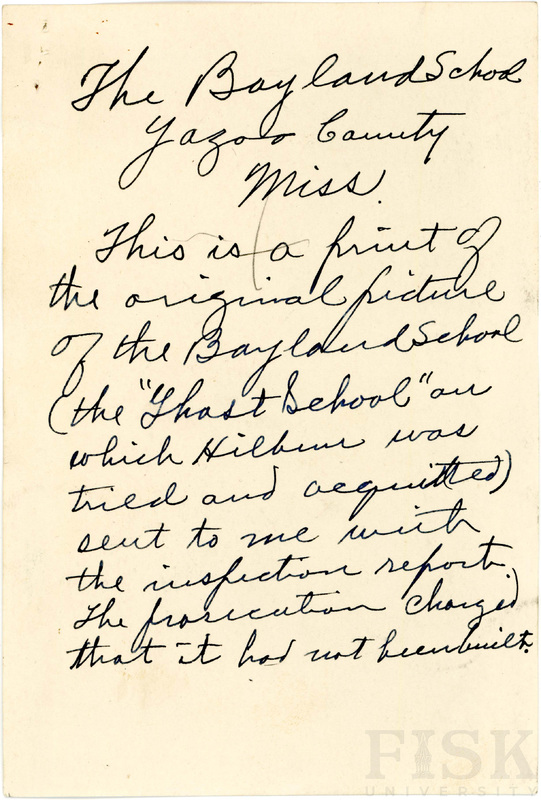 The Bayland School
Yazoo County
Miss.
This is a print of
the original picture
of the Bayland School
(the "Ghost School" on
which Hilbun was
tried and acquitted)
sent to me with
the inspection report.
The prosecution charged
that it had not been built.
FISK
UNIVERSITY